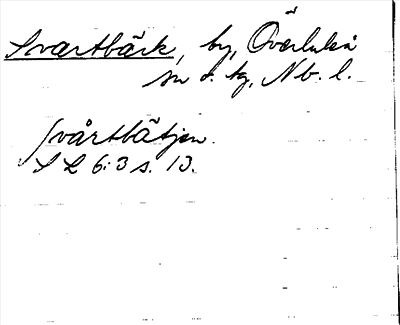 Svartbäck, by, Överluleå
sn o. tg, Nb. l.
svårtbätjen.
S L 6:3 s. 13.